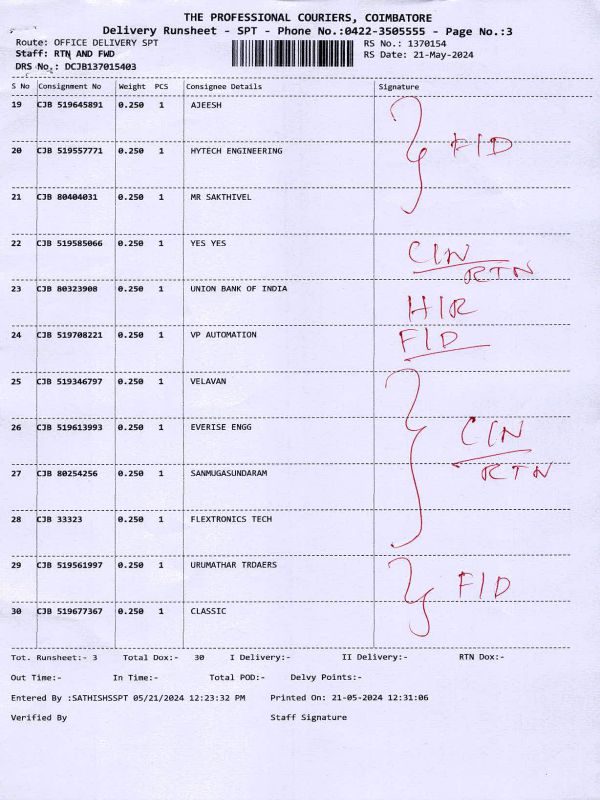 THE PROFESSIONAL COURIERS, COIMBATORE
Delivery Runsheet - SPT - Phone No.:0422-3505555 - Page No.:3
Route: OFFICE DELIVERY SPT RS No.: 1370154
Staff: RTN AND FWD RS Date: 21-May-2024
DRS No.: DCJB137015403
S No Consignment No Weight PCS Consignee Details Signature
19 CJB 519645891 0.250 1 AJEESH
F/D
20 CJB 519557771 0.250 1 HYTECH ENGINEERING
21 CJB 80404031 0.250 1 MR SAKTHIVEL
22 CJB 519585066 0.250 1 YES YES C/N
RTN
23 CJB 80323908 0.250 1 UNION BANK OF INDIA H/R
24 CJB 519708221 0.250 1 VP AUTOMATION F/D
25 CJB 519346797 0.250 1 VELAVAN
26 CJB 519613993 0.250 1 EVERISE ENGG C/N
27 CJB 80254256 0.250 1 SANMUGASUNDARAM RTN
28 CJB 33323 0.250 1 FLEXTRONICS TECH
29 CJB 519561997 0.250 1 URUMATHAR TRDAERS F/D
30 CJB 519677367 0.250 1 CLASSIC
Tot. Runsheet:- 3 Total Dox:- 30 I Delivery:- II Delivery:- RTN Dox:-
Out Time:- In Time:- Total POD:- Delvy Points:-
Entered By :SATHISHSSPT 05/21/2024 12:23:32 PM Printed On: 21-05-2024 12:31:06
Verified By Staff Signature